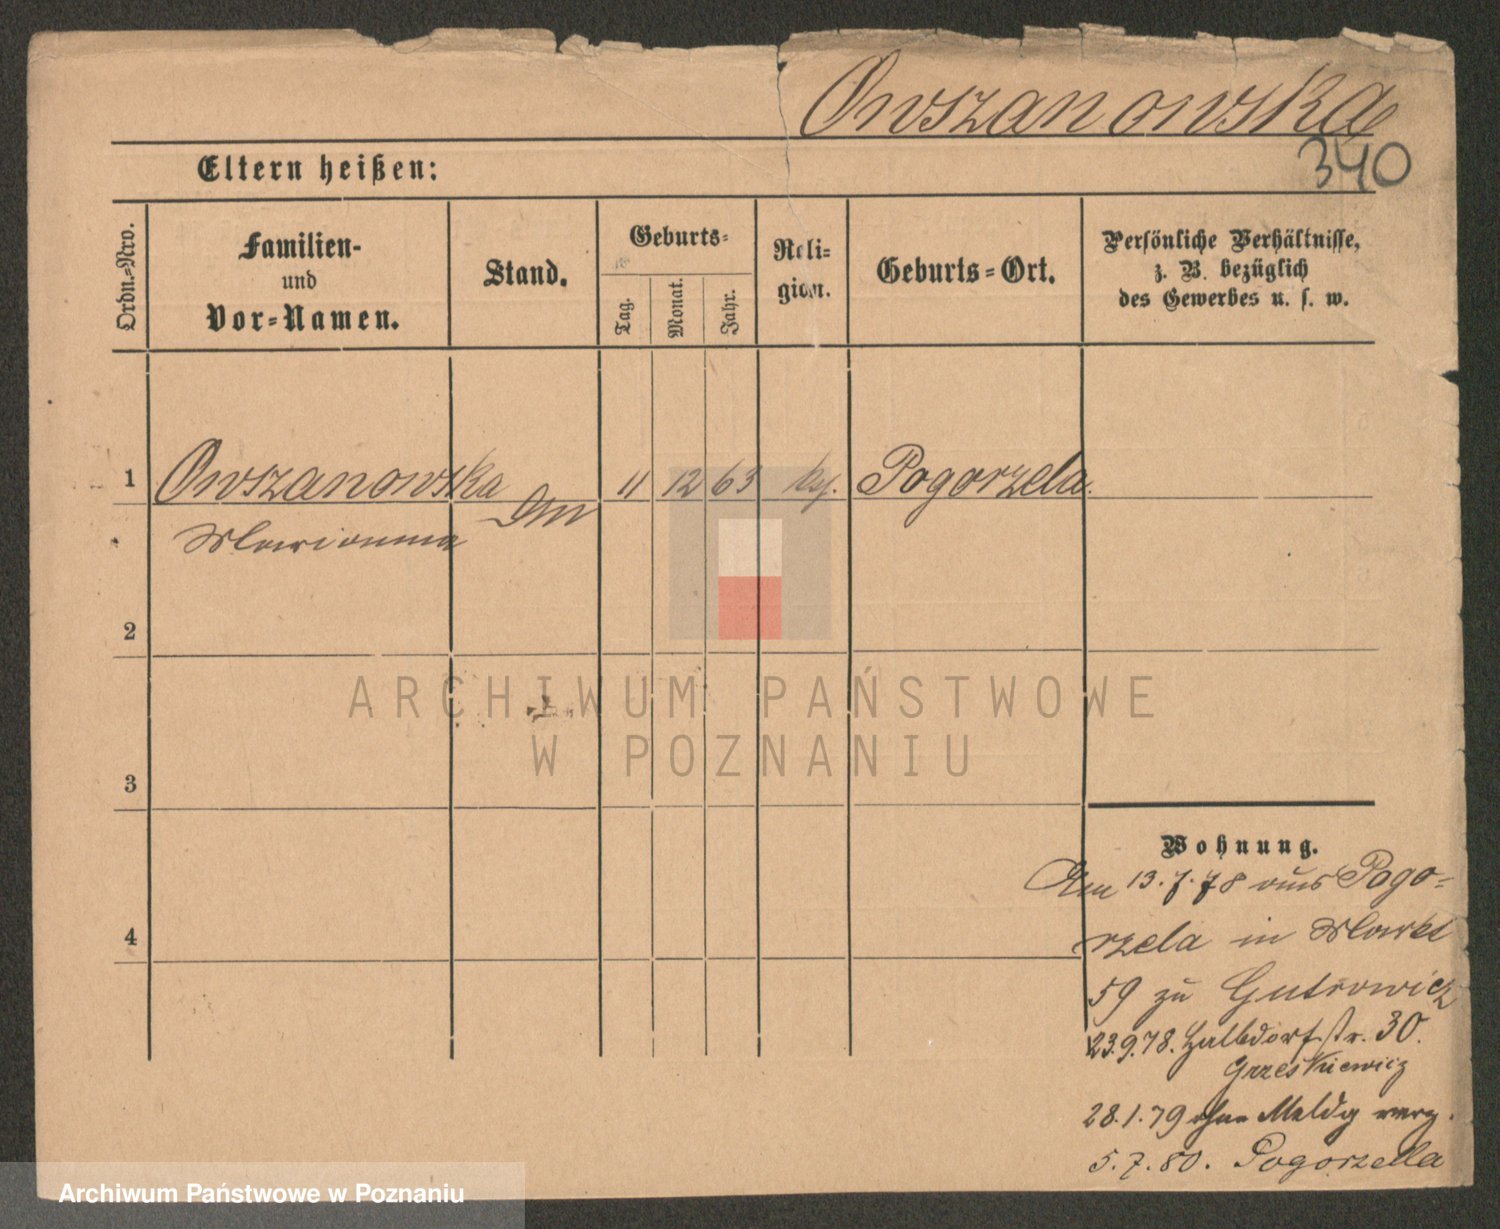 Owszanowska
340
Eltern heißen:
Ordn.-Nro.
Familien-
und
Vor-Namen.
Stand.
Geburts-
Tag.
Monat.
Jahr.
Reli-
gion.
Geburts-Ort.
Persönliche Verhältnisse,
z. B. bezüglich
des Gewerbes u. s. w.
1 Owszanowska 11 12 63 Pogorzela.
Marianna
2
3
4
Wohnung.
Am 13.7.78 aus Pogo-
rzela in Markt
59 zu Gutrowicz
23.9.78. Halbdorfstr. 30.
Grzeskiewicz
28.1.79 ohne Meldg verz.
5.7.80. Pogorzella
ARCHIWUM PAŃSTWOWE
W POZNANIU
Archiwum Państwowe w Poznaniu